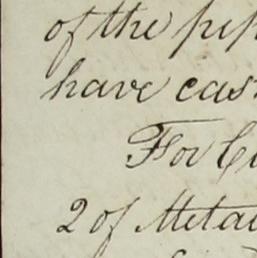 of the pip
have cas
For C
2 of Metal